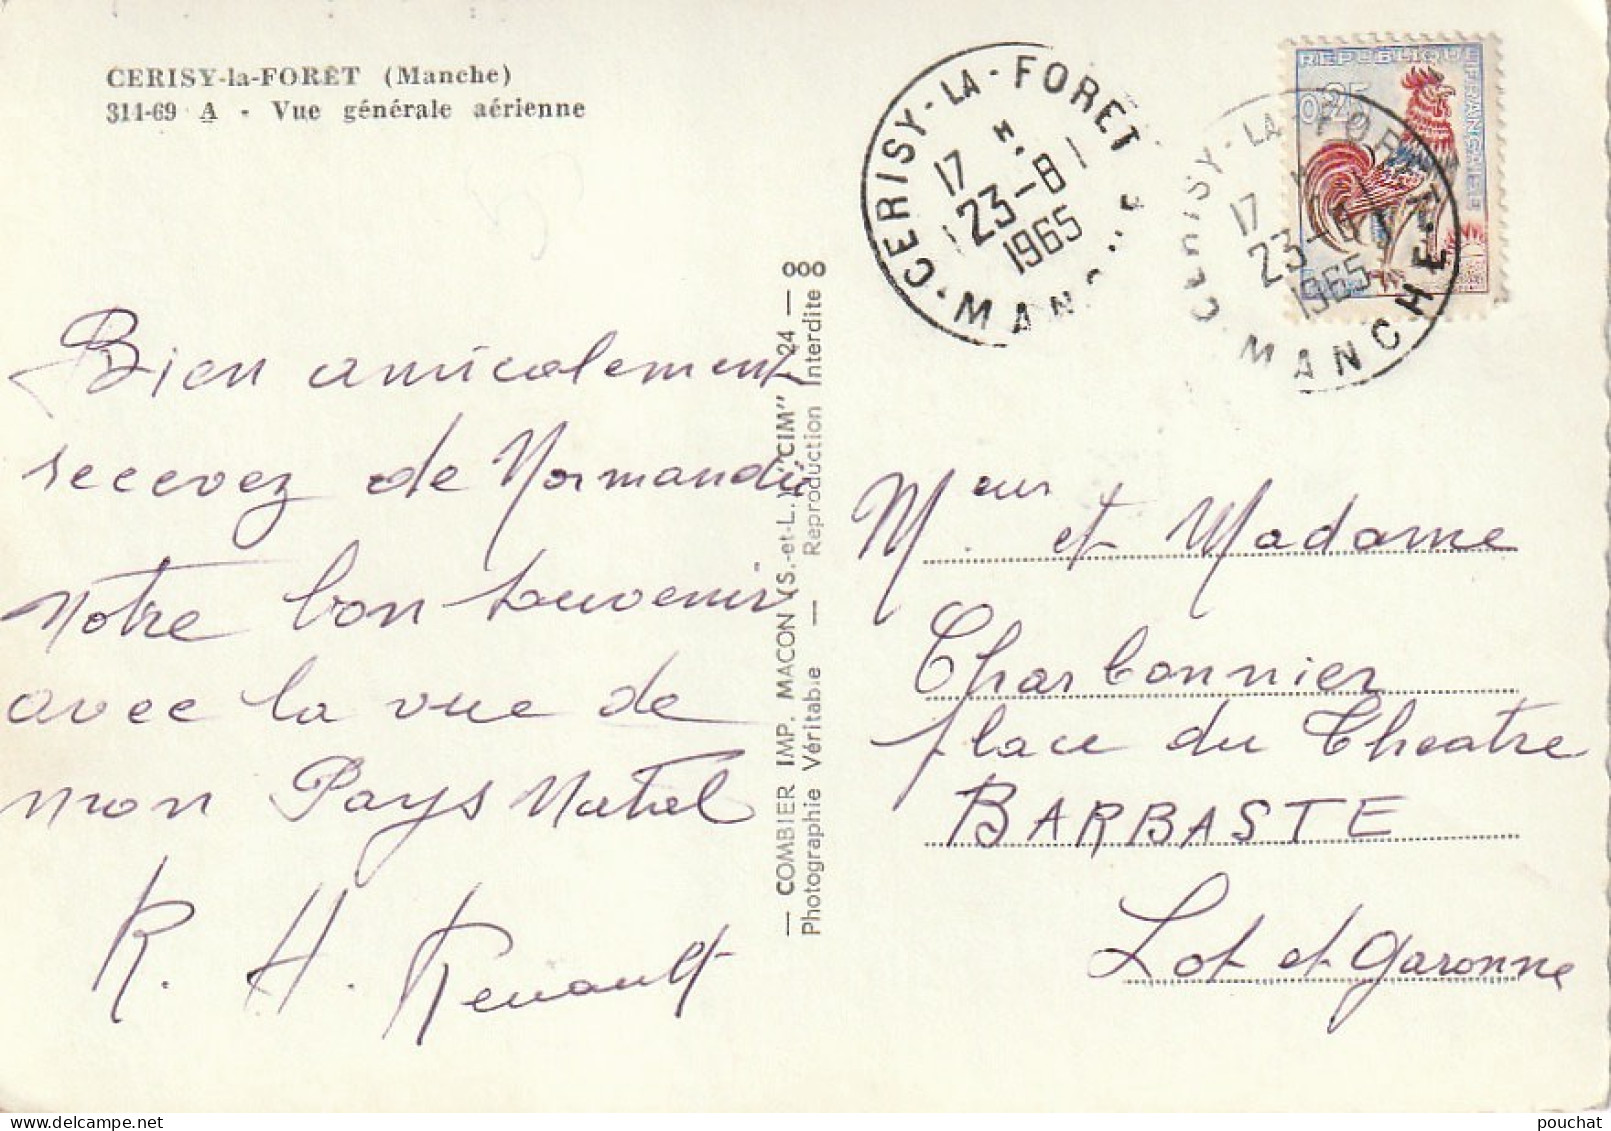 CERISY-la-FORÊT (Manche)
314-69 A - Vue générale aérienne
CERISY-LA-FORET
17 H.
23-8
1965
MANCHE
REPUBLIQUE FRANÇAISE
0,25
CERISY-LA-FORET
17 H
23-8
1965
MANCHE
Bien amicalement
recevez de Normandie
notre bon souvenir
avec la vue de
mon Pays Natal
R. H. Renault
— COMBIER IMP. MACON (S.-et-L.) "CIM" 24 — 000
Photographie Véritable — Reproduction Interdite
Meur et Madame
Charbonnier
place du Theatre
BARBASTE
Lot et garonne
pouchat